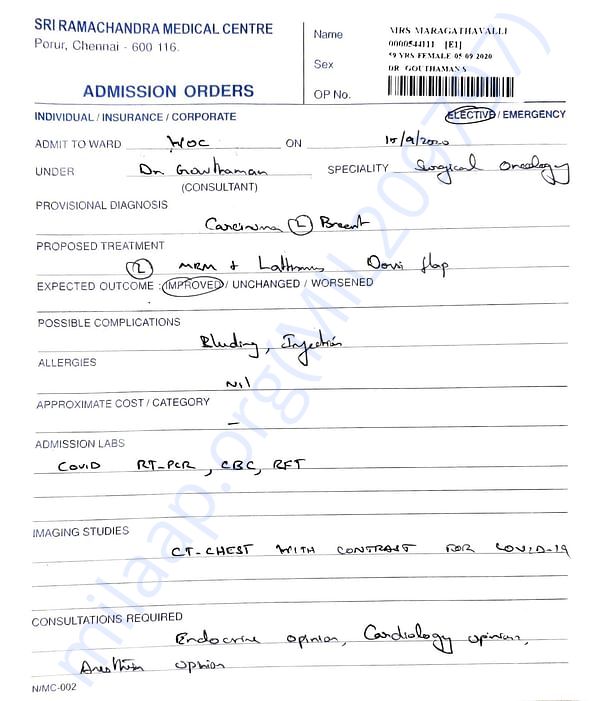 SRI RAMACHANDRA MEDICAL CENTRE
Porur, Chennai - 600 116.
ADMISSION ORDERS
Name MRS MARAGATHAVALLI
0000544111 [E1]
Sex 59 YRS FEMALE 05 09 2020
DR GOUTHAMAN S
OP No.
INDIVIDUAL / INSURANCE / CORPORATE ELECTIVE / EMERGENCY
ADMIT TO WARD WOC ON 15/9/2020
UNDER Dr. Gowthaman SPECIALITY Surgical Oncology
(CONSULTANT)
PROVISIONAL DIAGNOSIS
Carcinoma (L) Breast
PROPOSED TREATMENT
(L) MRM + Dorsi flap
EXPECTED OUTCOME : IMPROVED / UNCHANGED / WORSENED
POSSIBLE COMPLICATIONS
Bleeding, Infection
ALLERGIES
Nil
APPROXIMATE COST / CATEGORY
–
ADMISSION LABS
COVID RT-PCR, CBC, RFT
IMAGING STUDIES
CT-CHEST WITH CONTRAST FOR COVID-19
CONSULTATIONS REQUIRED
Endocrine opinion, Cardiology opinion,
opinion
N/MC-002
milaap.org(MIL209707)